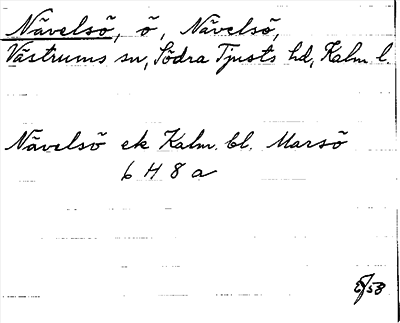 Nävelsö, ö, Nävelsö,
Västrums sn, Södra Tjusts hd, Kalm. l.
Nävelsö ek Kalm. bl. Marsö
6 H 8 a